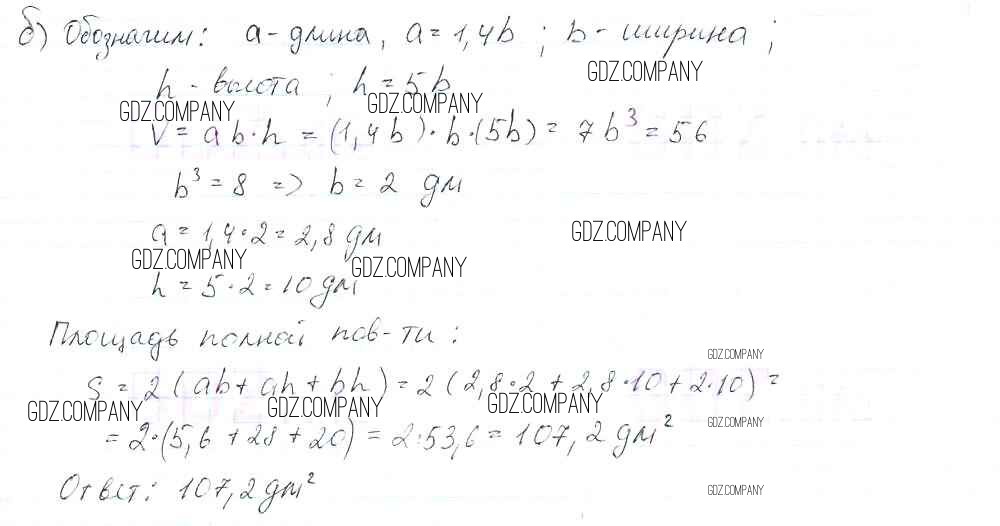 б) Обозначим: a - длина, a = 1,4b ; b - ширина ;
GDZ.COMPANY
h - высота ; h = 5b
GDZ.COMPANY GDZ.COMPANY
V = ab·h = (1,4b)·b·(5b) = 7b³ = 56
b³ = 8 => b = 2 дм
a = 1,4·2 = 2,8 дм
GDZ.COMPANY
GDZ.COMPANY GDZ.COMPANY
h = 5·2 = 10 дм
Площадь полной пов-ти :
GDZ.COMPANY
S = 2 (ab + ah + bh) = 2 (2,8·2 + 2,8·10 + 2·10) =
GDZ.COMPANY GDZ.COMPANY GDZ.COMPANY
GDZ.COMPANY
= 2·(5,6 + 28 + 20) = 2·53,6 = 107,2 дм²
Ответ: 107,2 дм²
GDZ.COMPANY